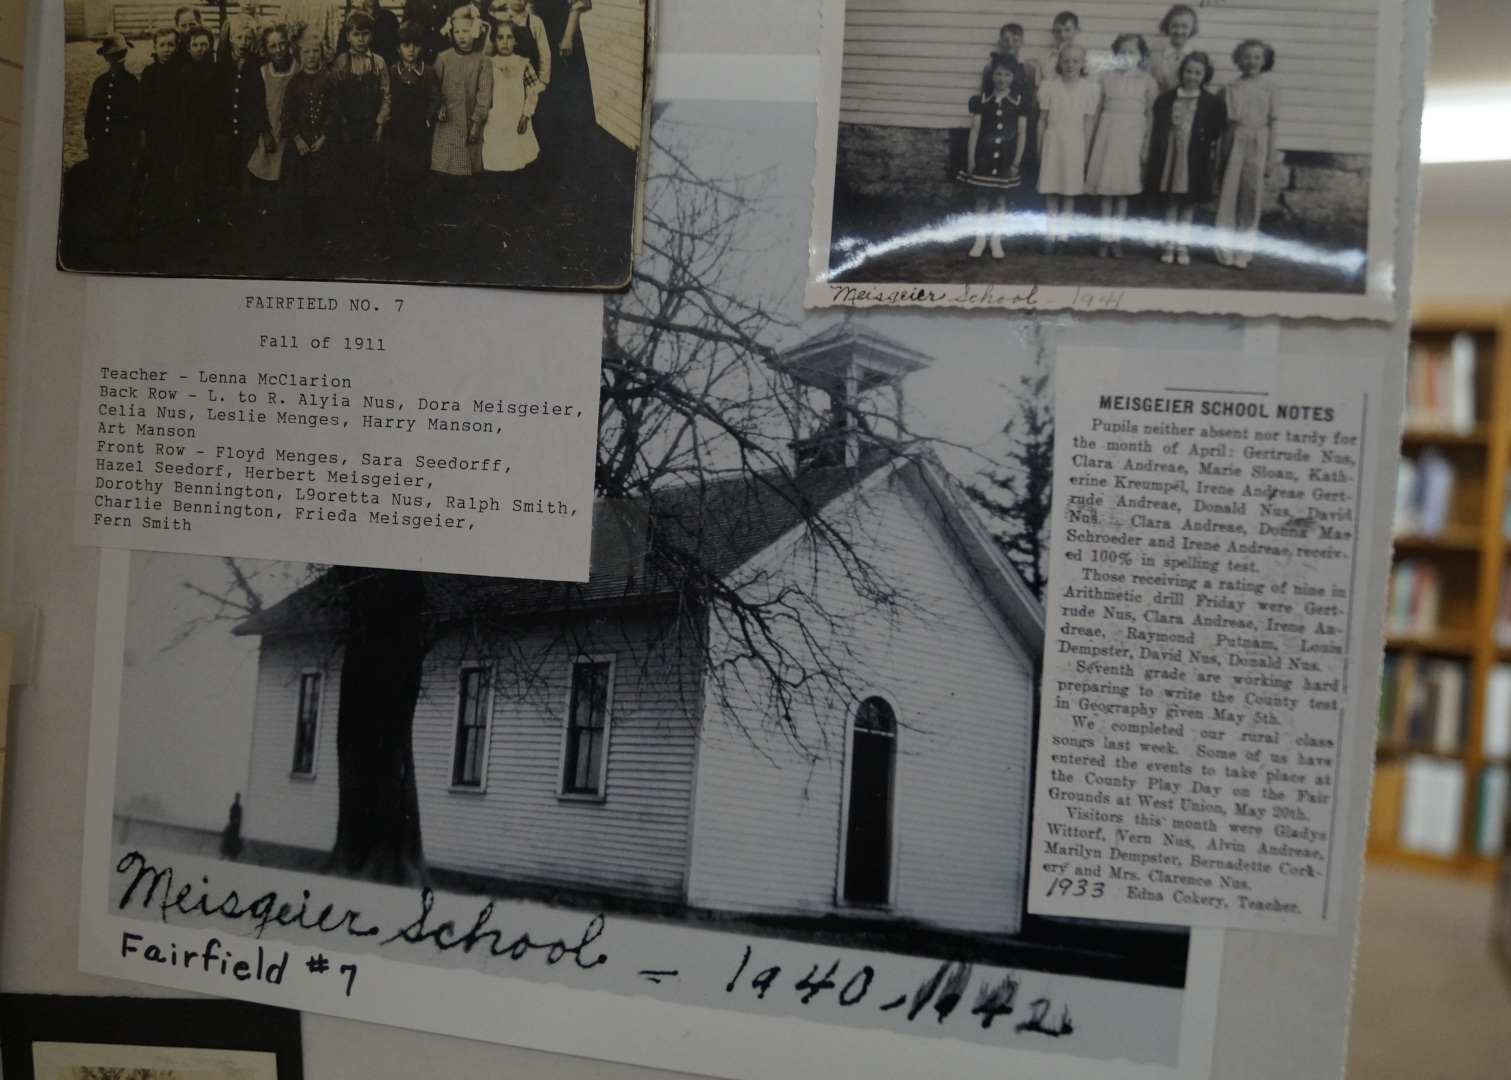 Meisgeier School - 1941
FAIRFIELD NO. 7
Fall of 1911
Teacher - Lenna McClarion
Back Row - L. to R. Alyia Nus, Dora Meisgeier,
Celia Nus, Leslie Menges, Harry Manson,
Art Manson
Front Row - Floyd Menges, Sara Seedorff,
Hazel Seedorf, Herbert Meisgeier,
Dorothy Bennington, L9oretta Nus, Ralph Smith,
Charlie Bennington, Frieda Meisgeier,
Fern Smith
MEISGEIER SCHOOL NOTES
Pupils neither absent nor tardy for
the month of April: Gertrude Nus,
Clara Andreae, Marie Sloan, Kath-
erine Kreumpel, Irene Andreae Gert-
rude Andreae, Donald Nus, David
Nus. Clara Andreae, Donna Mae
Schroeder and Irene Andreae, receiv-
ed 100% in spelling test.
Those receiving a rating of nine in
Arithmetic drill Friday were Gert-
rude Nus, Clara Andreae, Irene An-
dreae, Raymond Putnam, Louis
Dempster, David Nus, Donald Nus.
Seventh grade are working hard
preparing to write the County test
in Geography given May 5th.
We completed our rural class
songs last week. Some of us have
entered the events to take place at
the County Play Day on the Fair
Grounds at West Union, May 20th.
Visitors this month were Gladys
Wittorf, Vern Nus, Alvin Andreae,
Marilyn Dempster, Bernadette Cork-
ery and Mrs. Clarence Nus.
1933 Edna Cokery, Teacher.
Meisgeier School - 1940-1942
Fairfield #7